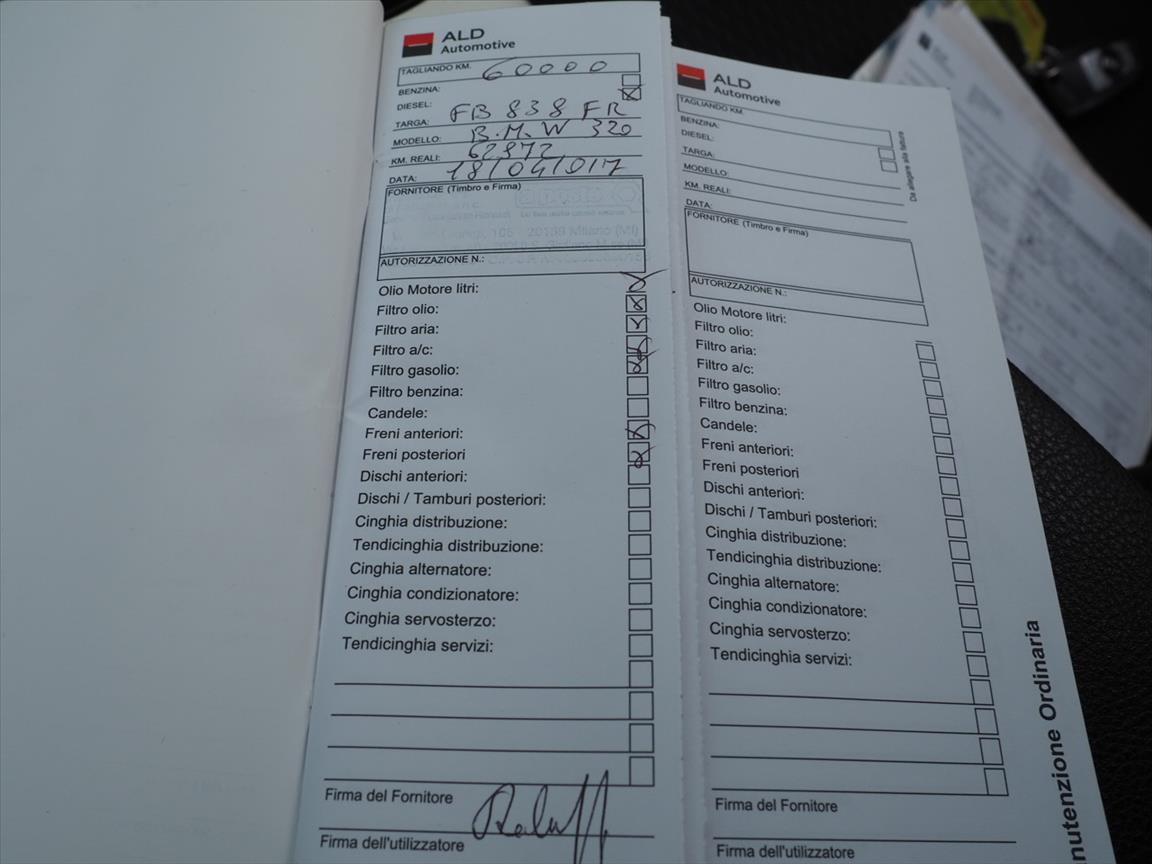 ALD
Automotive
TAGLIANDO KM. 60000
BENZINA:
DIESEL:
TARGA: FB 838 FR
MODELLO: B.M.W 320
KM. REALI: 62872
DATA: 18/04/017
FORNITORE (Timbro e Firma)
AUTORIZZAZIONE N.:
Olio Motore litri:
Filtro olio:
Filtro aria:
Filtro a/c:
Filtro gasolio:
Filtro benzina:
Candele:
Freni anteriori:
Freni posteriori
Dischi anteriori:
Dischi / Tamburi posteriori:
Cinghia distribuzione:
Tendicinghia distribuzione:
Cinghia alternatore:
Cinghia condizionatore:
Cinghia servosterzo:
Tendicinghia servizi:
Firma del Fornitore
Firma dell'utilizzatore
ALD
Automotive
TAGLIANDO KM.
BENZINA:
DIESEL:
TARGA:
MODELLO:
KM. REALI:
DATA:
FORNITORE (Timbro e Firma)
AUTORIZZAZIONE N.:
Olio Motore litri:
Filtro olio:
Filtro aria:
Filtro a/c:
Filtro gasolio:
Filtro benzina:
Candele:
Freni anteriori:
Freni posteriori
Dischi anteriori:
Dischi / Tamburi posteriori:
Cinghia distribuzione:
Tendicinghia distribuzione:
Cinghia alternatore:
Cinghia condizionatore:
Cinghia servosterzo:
Tendicinghia servizi:
Firma del Fornitore
Firma dell'utilizzatore
Da allegare alla fattura
nutenzione Ordinaria